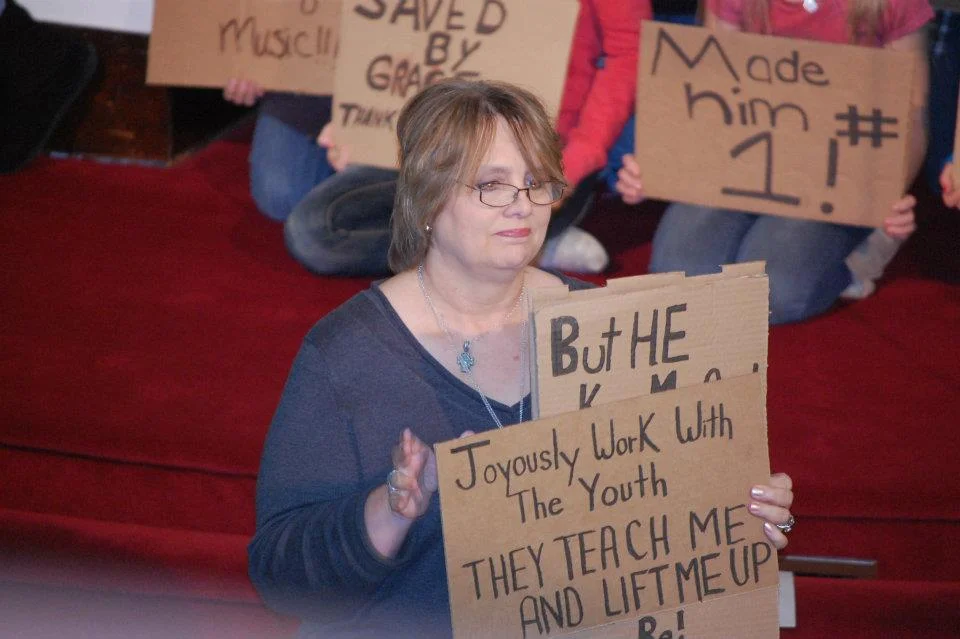 Music!!
SAVED
BY
GRACE
THANK
Made
him #
1!
But HE
Joyously Work With
The Youth
THEY TEACH ME
AND LIFT ME UP
Be!